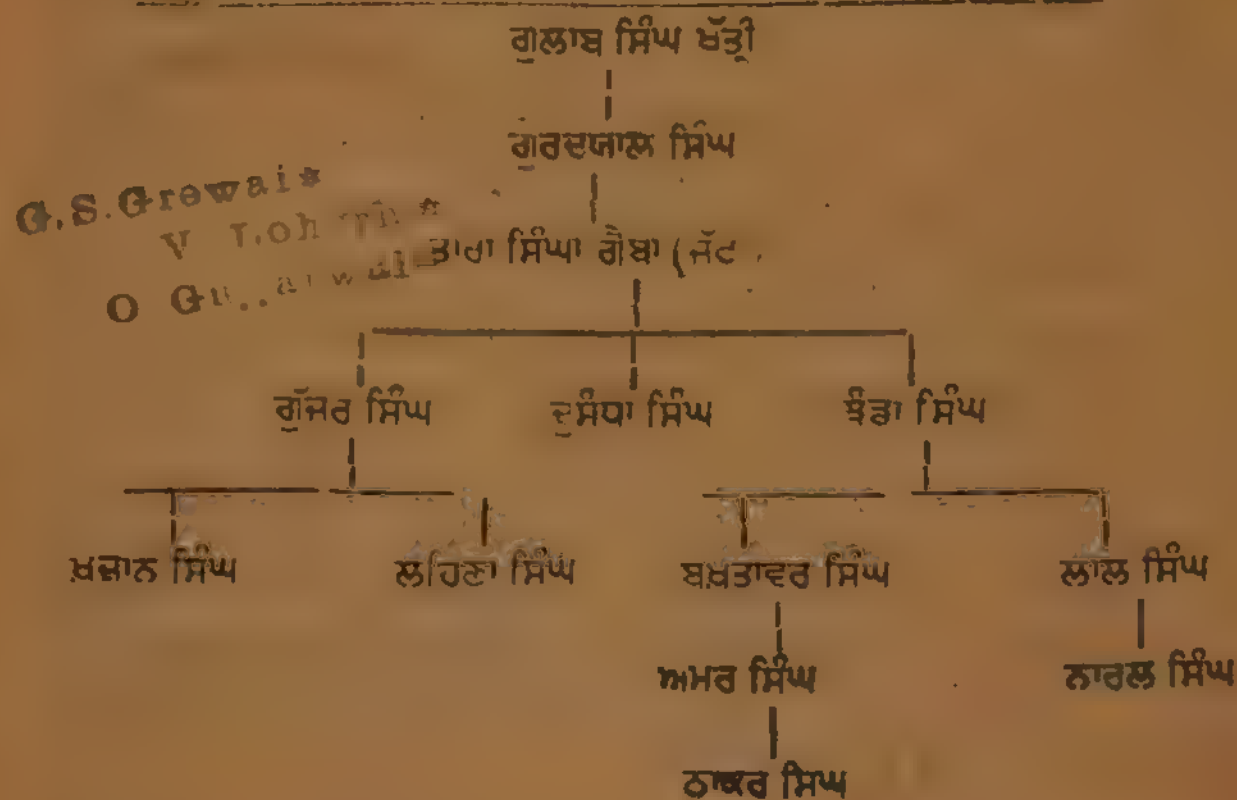 ਗੁਲਾਬ ਸਿੰਘ ਖੱਤ੍ਰੀ
ਗੁਰਦਯਾਲ ਸਿੰਘ
G.S.Grewal
ਤਾਰਾ ਸਿੰਘਾ ਗੈਬਾ (ਜੱਟ
ਗੁੱਜਰ ਸਿੰਘ ਦੁਸੰਧਾ ਸਿੰਘ ਝੰਡਾ ਸਿੰਘ
ਖ਼ਜ਼ਾਨ ਸਿੰਘ ਲਹਿਣਾ ਸਿੰਘ ਬਖ਼ਤਾਵਰ ਸਿੰਘ ਲਾਲ ਸਿੰਘ
ਅਮਰ ਸਿੰਘ ਨਾਰਲ ਸਿੰਘ
ਠਾਕਰ ਸਿੰਘ